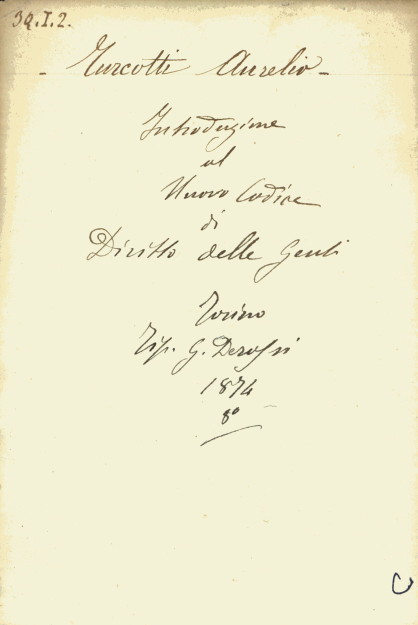 39.I.2.
- Turcotti Aurelio -
Introduzione
al
Nuovo Codice
di
Diritto delle Genti
Torino
Tip. G. Derossi
1874
8°